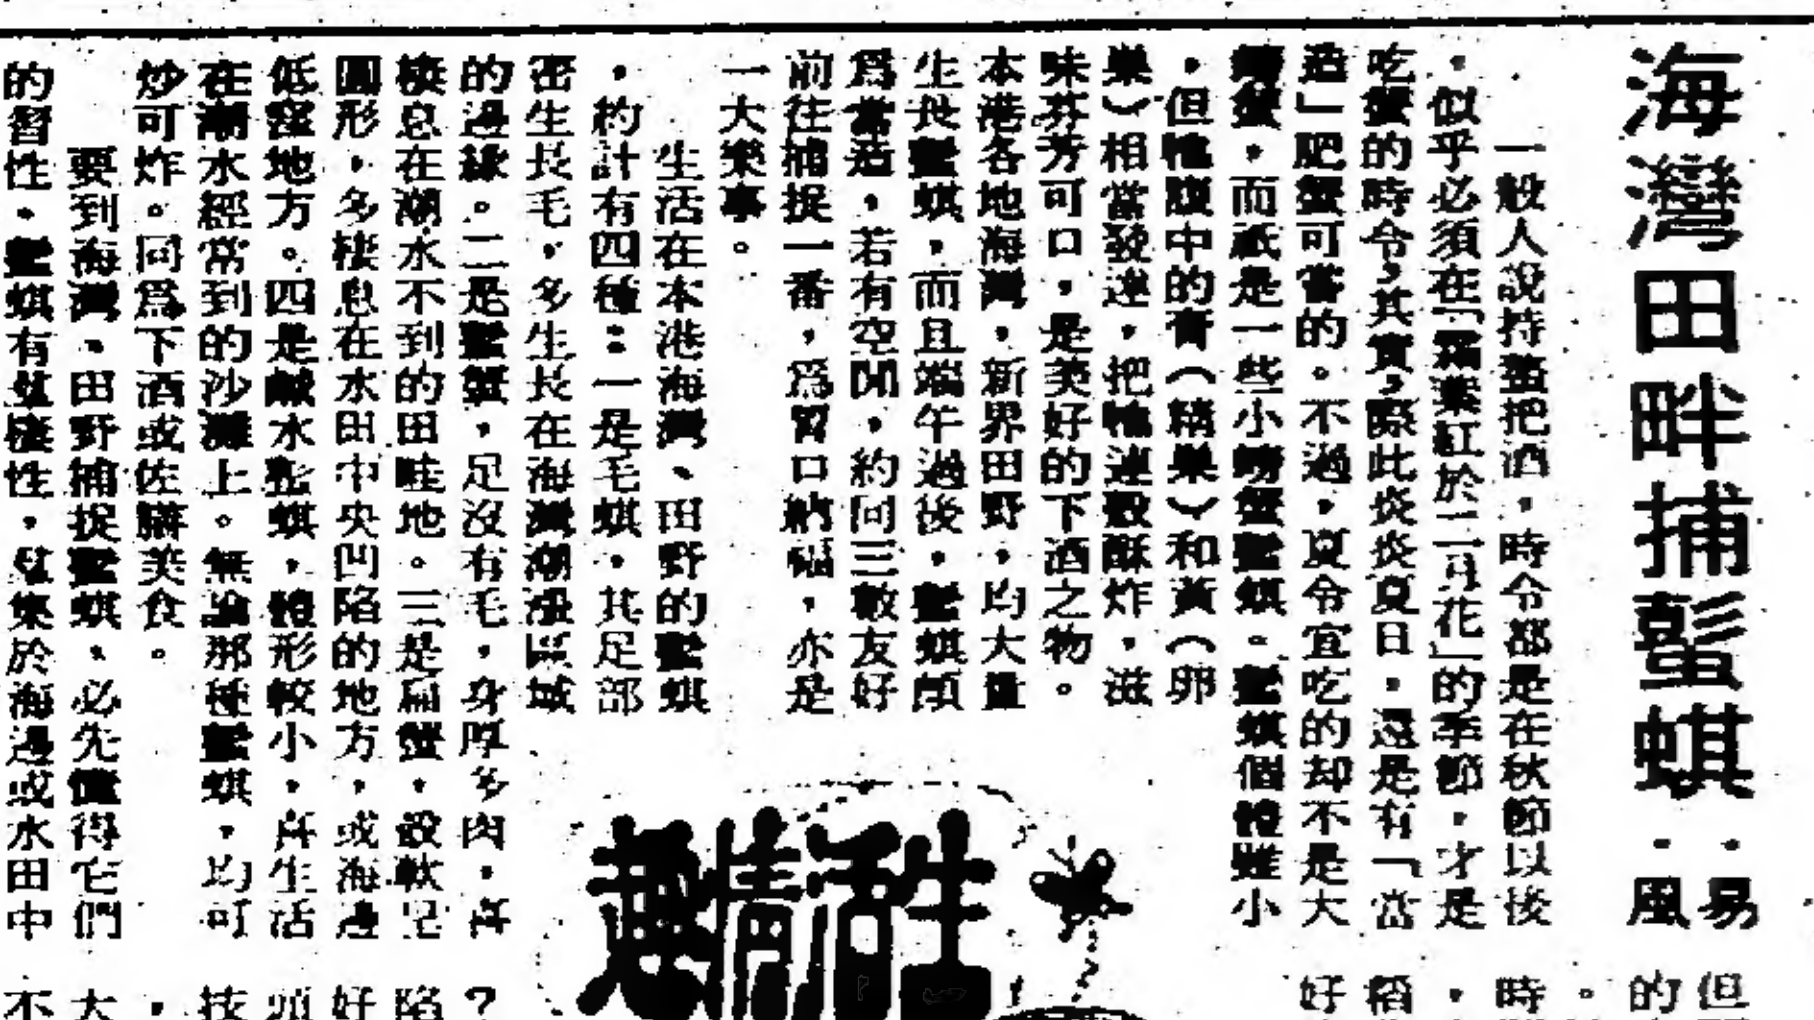 海灣田畔捕蟛蜞
·易
·風
一般人說持螯把酒，時令都是在秋節以後
，似乎必須在「霜葉紅於二月花」的季節，才是
吃蟹的時令，其實，際此炎炎夏日，還是有「當
造」肥蟹可嘗的。不過，夏令宜吃的却不是大
螃蟹，而祇是一些小螃蟹蟛蜞。蟛蜞個體雖小
，但牠腹中的膏（精巢）和黃（卵
巢）相當發達，把牠連殼酥炸，滋
味芬芳可口，是美好的下酒之物。
本港各地海灣，新界田野，均大量
生長蟛蜞，而且端午過後，蟛蜞頗
爲當造，若有空閒，約同三數友好
前往捕捉一番，爲胃口納福，亦是
一大樂事。
生活在本港海灣、田野的蟛蜞
，約計有四種：一是毛蜞，其足部
密生長毛，多生長在海灣潮漲區域
的邊緣。二是蟛蟹，足沒有毛，身厚多肉，喜
棲息在潮水不到的田畦地。三是扁蟹，殼軟呈
圓形，多棲息在水田中央凹陷的地方，或海邊
低窪地方。四是鹹水蟛蜞，體形較小，喜生活
在潮水經常到的沙灘上。無論那種蟛蜞，均可
炒可炸。同爲下酒或佐膳美食。
要到海灣、田野捕捉蟛蜞，必先懂得它們
的習性。蟛蜞有羣棲性，羣集於海邊或水田中
生活情趣
但
的
。
時
，
稻
好
？
陷
好
頭
技
，
大
不